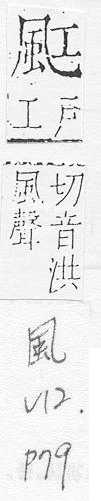 䫹
戶
工
切音洪
風聲
風
V12.
P79